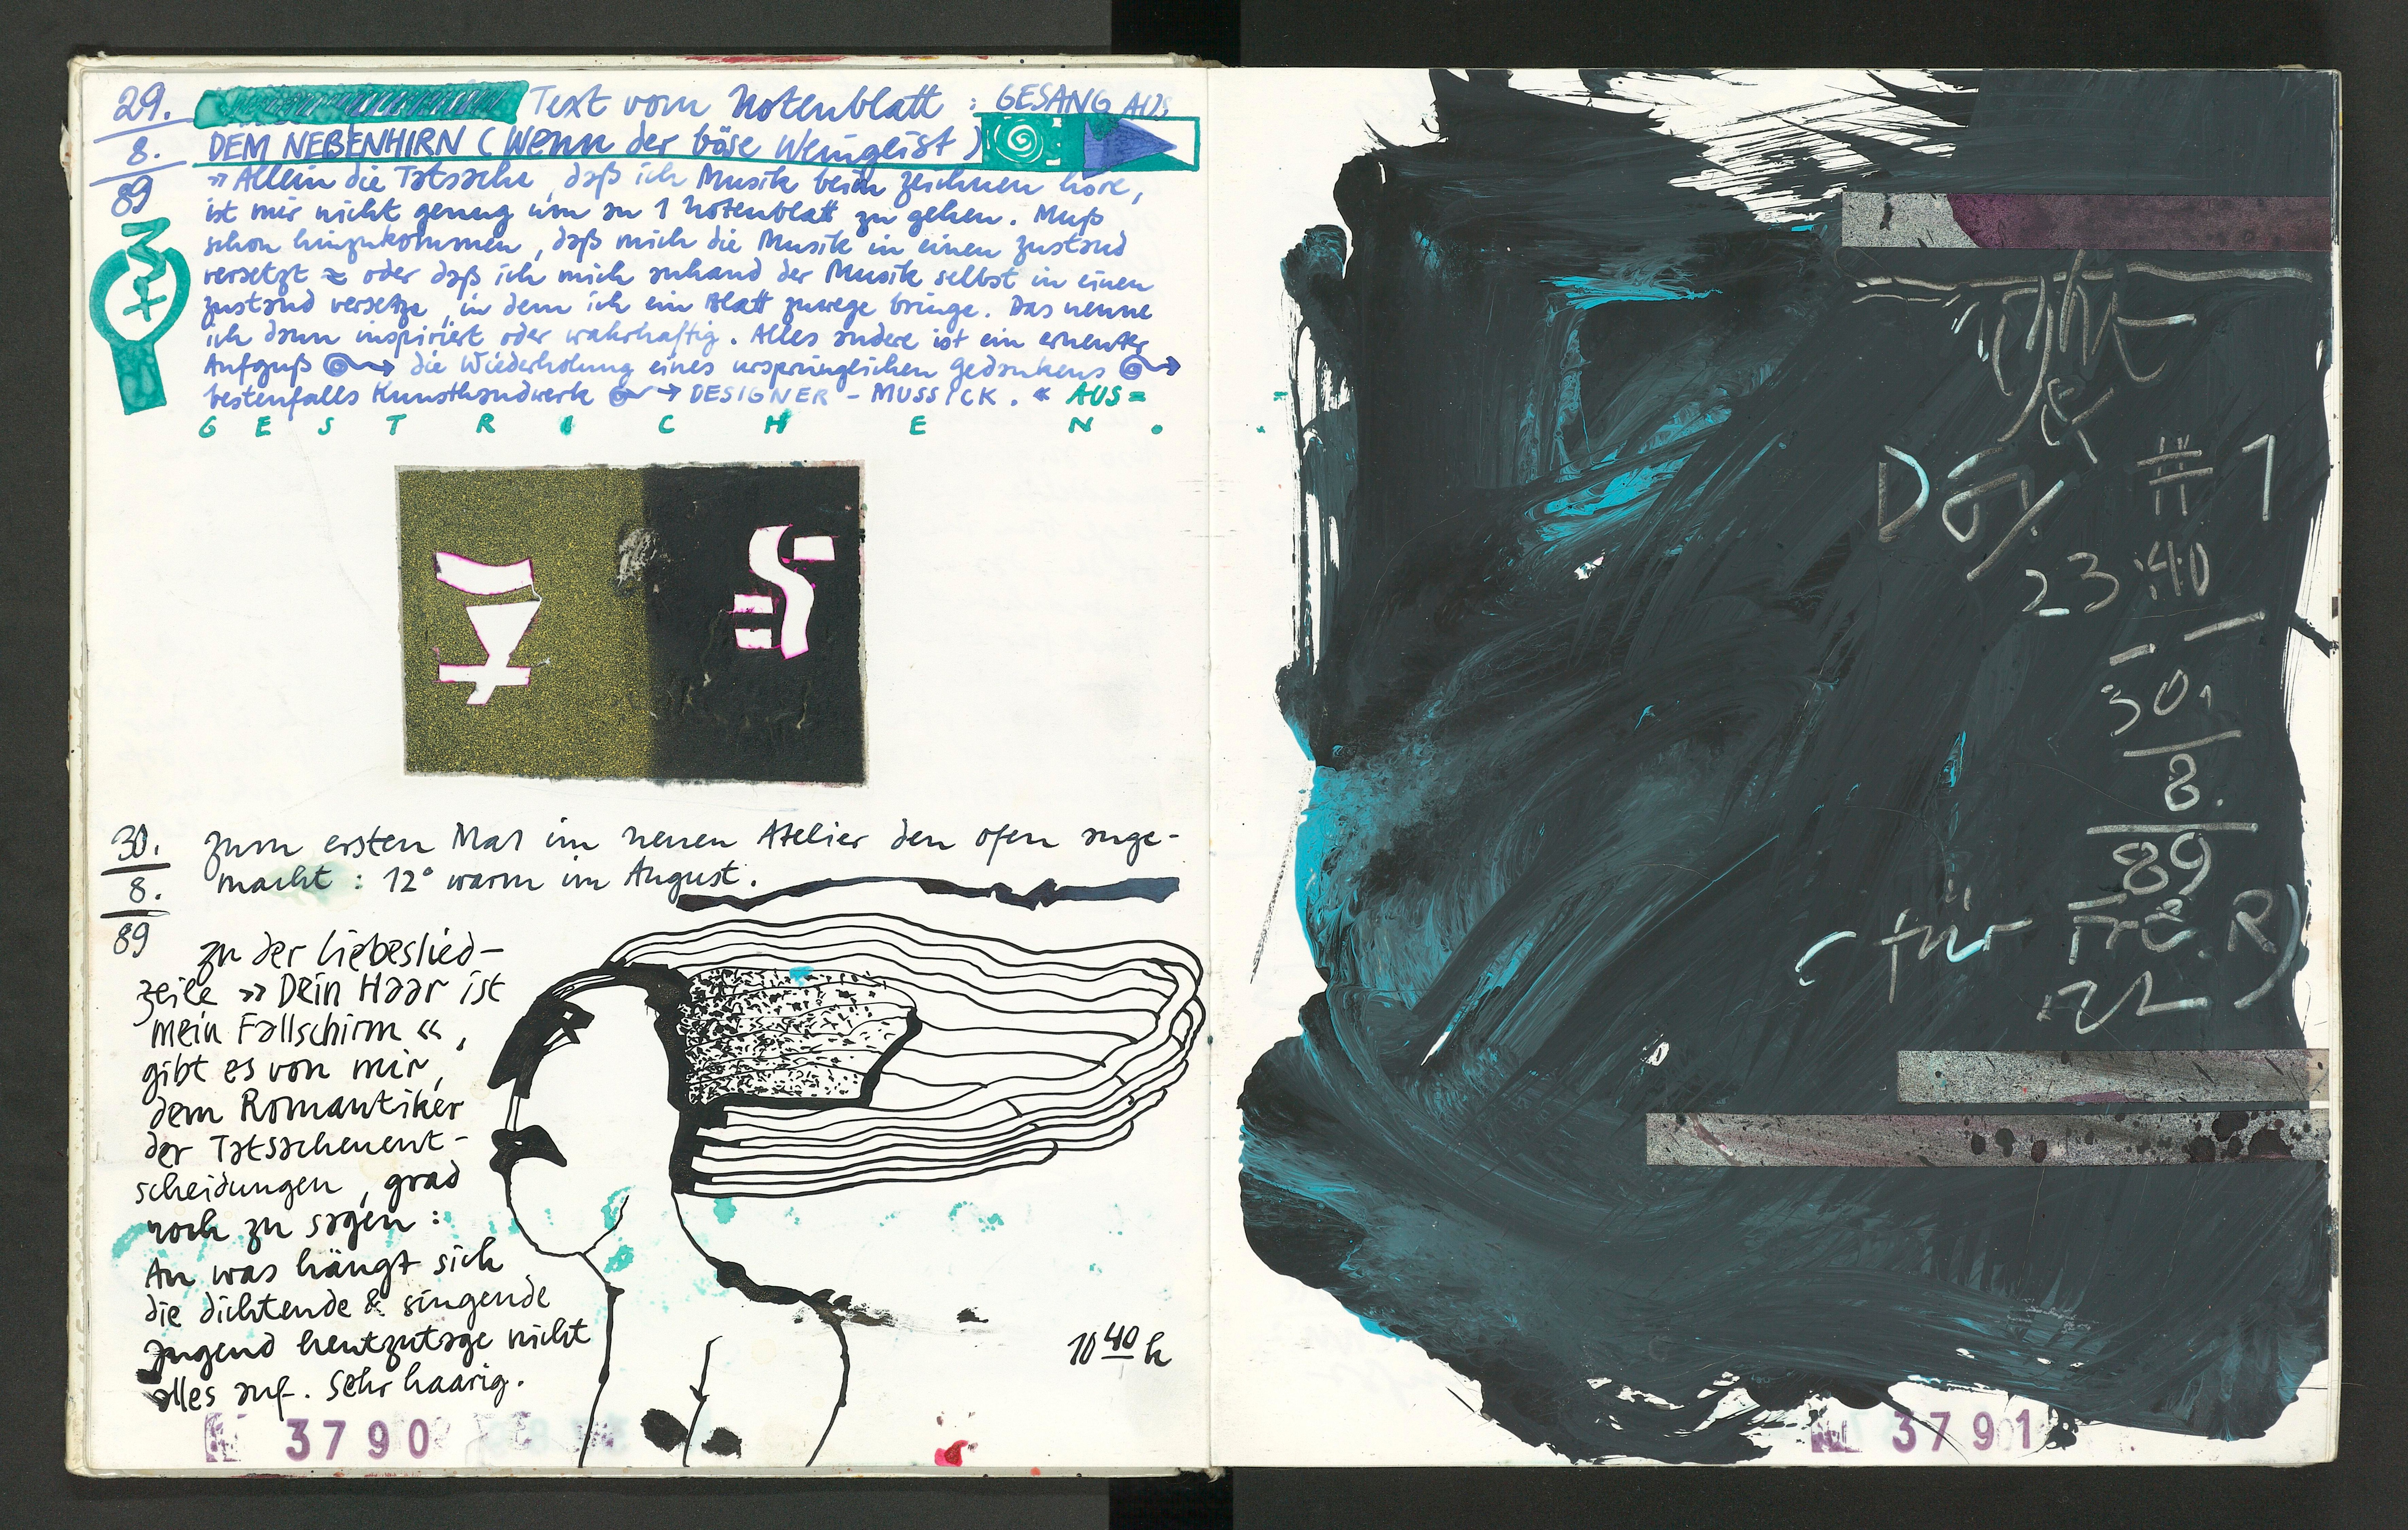 29.
8.
89
Text vom Notenblatt : GESANG AUS
DEM NEBENHIRN (Wenn der böse Weingeist)
»Allein die Tatsache, daß ich Musik beim zeichnen höre,
ist mir nicht genug um an 1 Notenblatt zu gehen. Muß
schon hinzukommen, daß mich die Musik in einen Zustand
versetzt ≈ oder daß ich mich anhand der Musik selbst in einen
Zustand versetze, in dem ich ein Blatt zuwege bringe. Das nenne
ich dann inspiriert oder wahrhaftig. Alles andere ist ein erneuter
Aufguß → die Wiederholung eines ursprünglichen Gedankens →
bestenfalls Kunsthandwerk → DESIGNER - MUSSICK. « AUS=
GESTRICHEN.
30.
8.
89
Zum ersten Mal im neuen Atelier den Ofen ange-
macht : 12° warm im August.
zu der Liebeslied-
zeile »Dein Haar ist
mein Fallschirm«,
gibt es von mir,
dem Romantiker
der Tatsachenent-
scheidungen, grad
noch zu sagen :
An was hängt sich
die dichtende & singende
Jugend heutzutage nicht
alles auf. Sehr haarig.
10 40 h
3790
Day #1
23:40
30.
8.
89
(für R)
3791